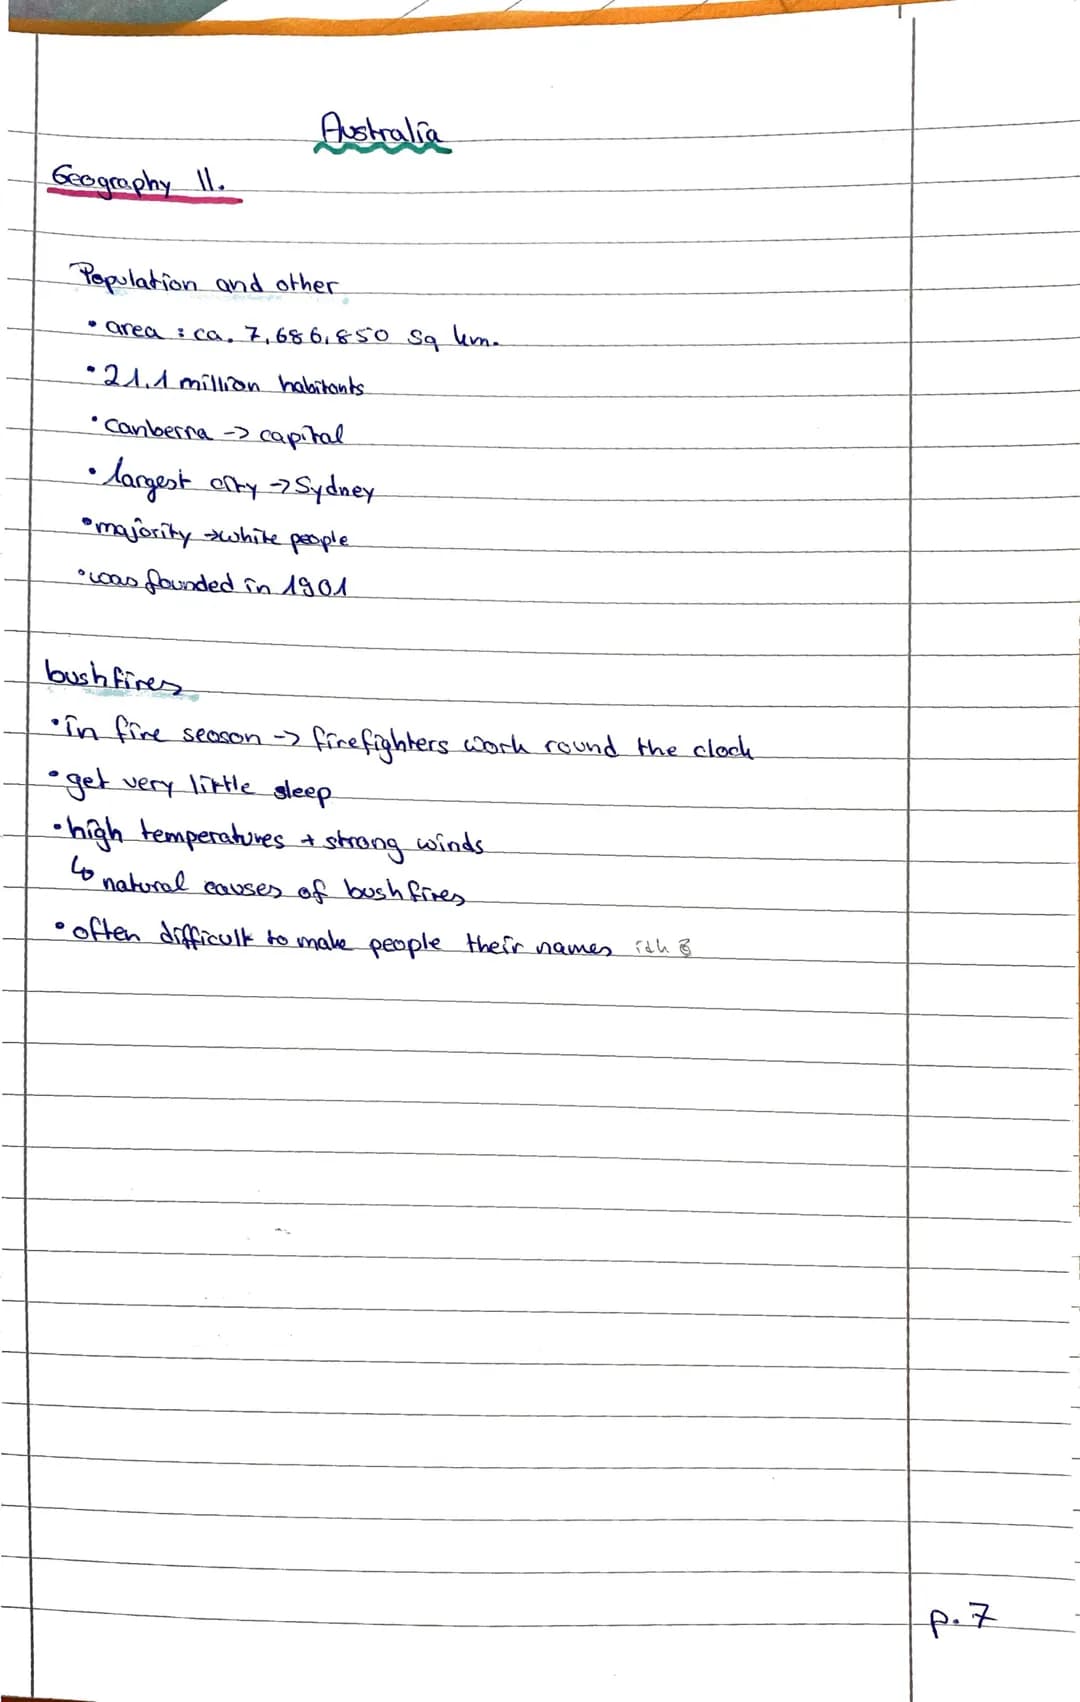 Australia
Geography II.
Population and other
• area : ca. 7,686,850 sq km.
• 21.1 million habitants
• Canberra -> capital
• largest city -> Sydney
• majority -> white people
• was founded in 1901
bushfires
• in fire season -> firefighters work round the clock
• get very little sleep
• high temperatures + strong winds
↳ natural causes of bushfires
• often difficult to make people their names
p. 7